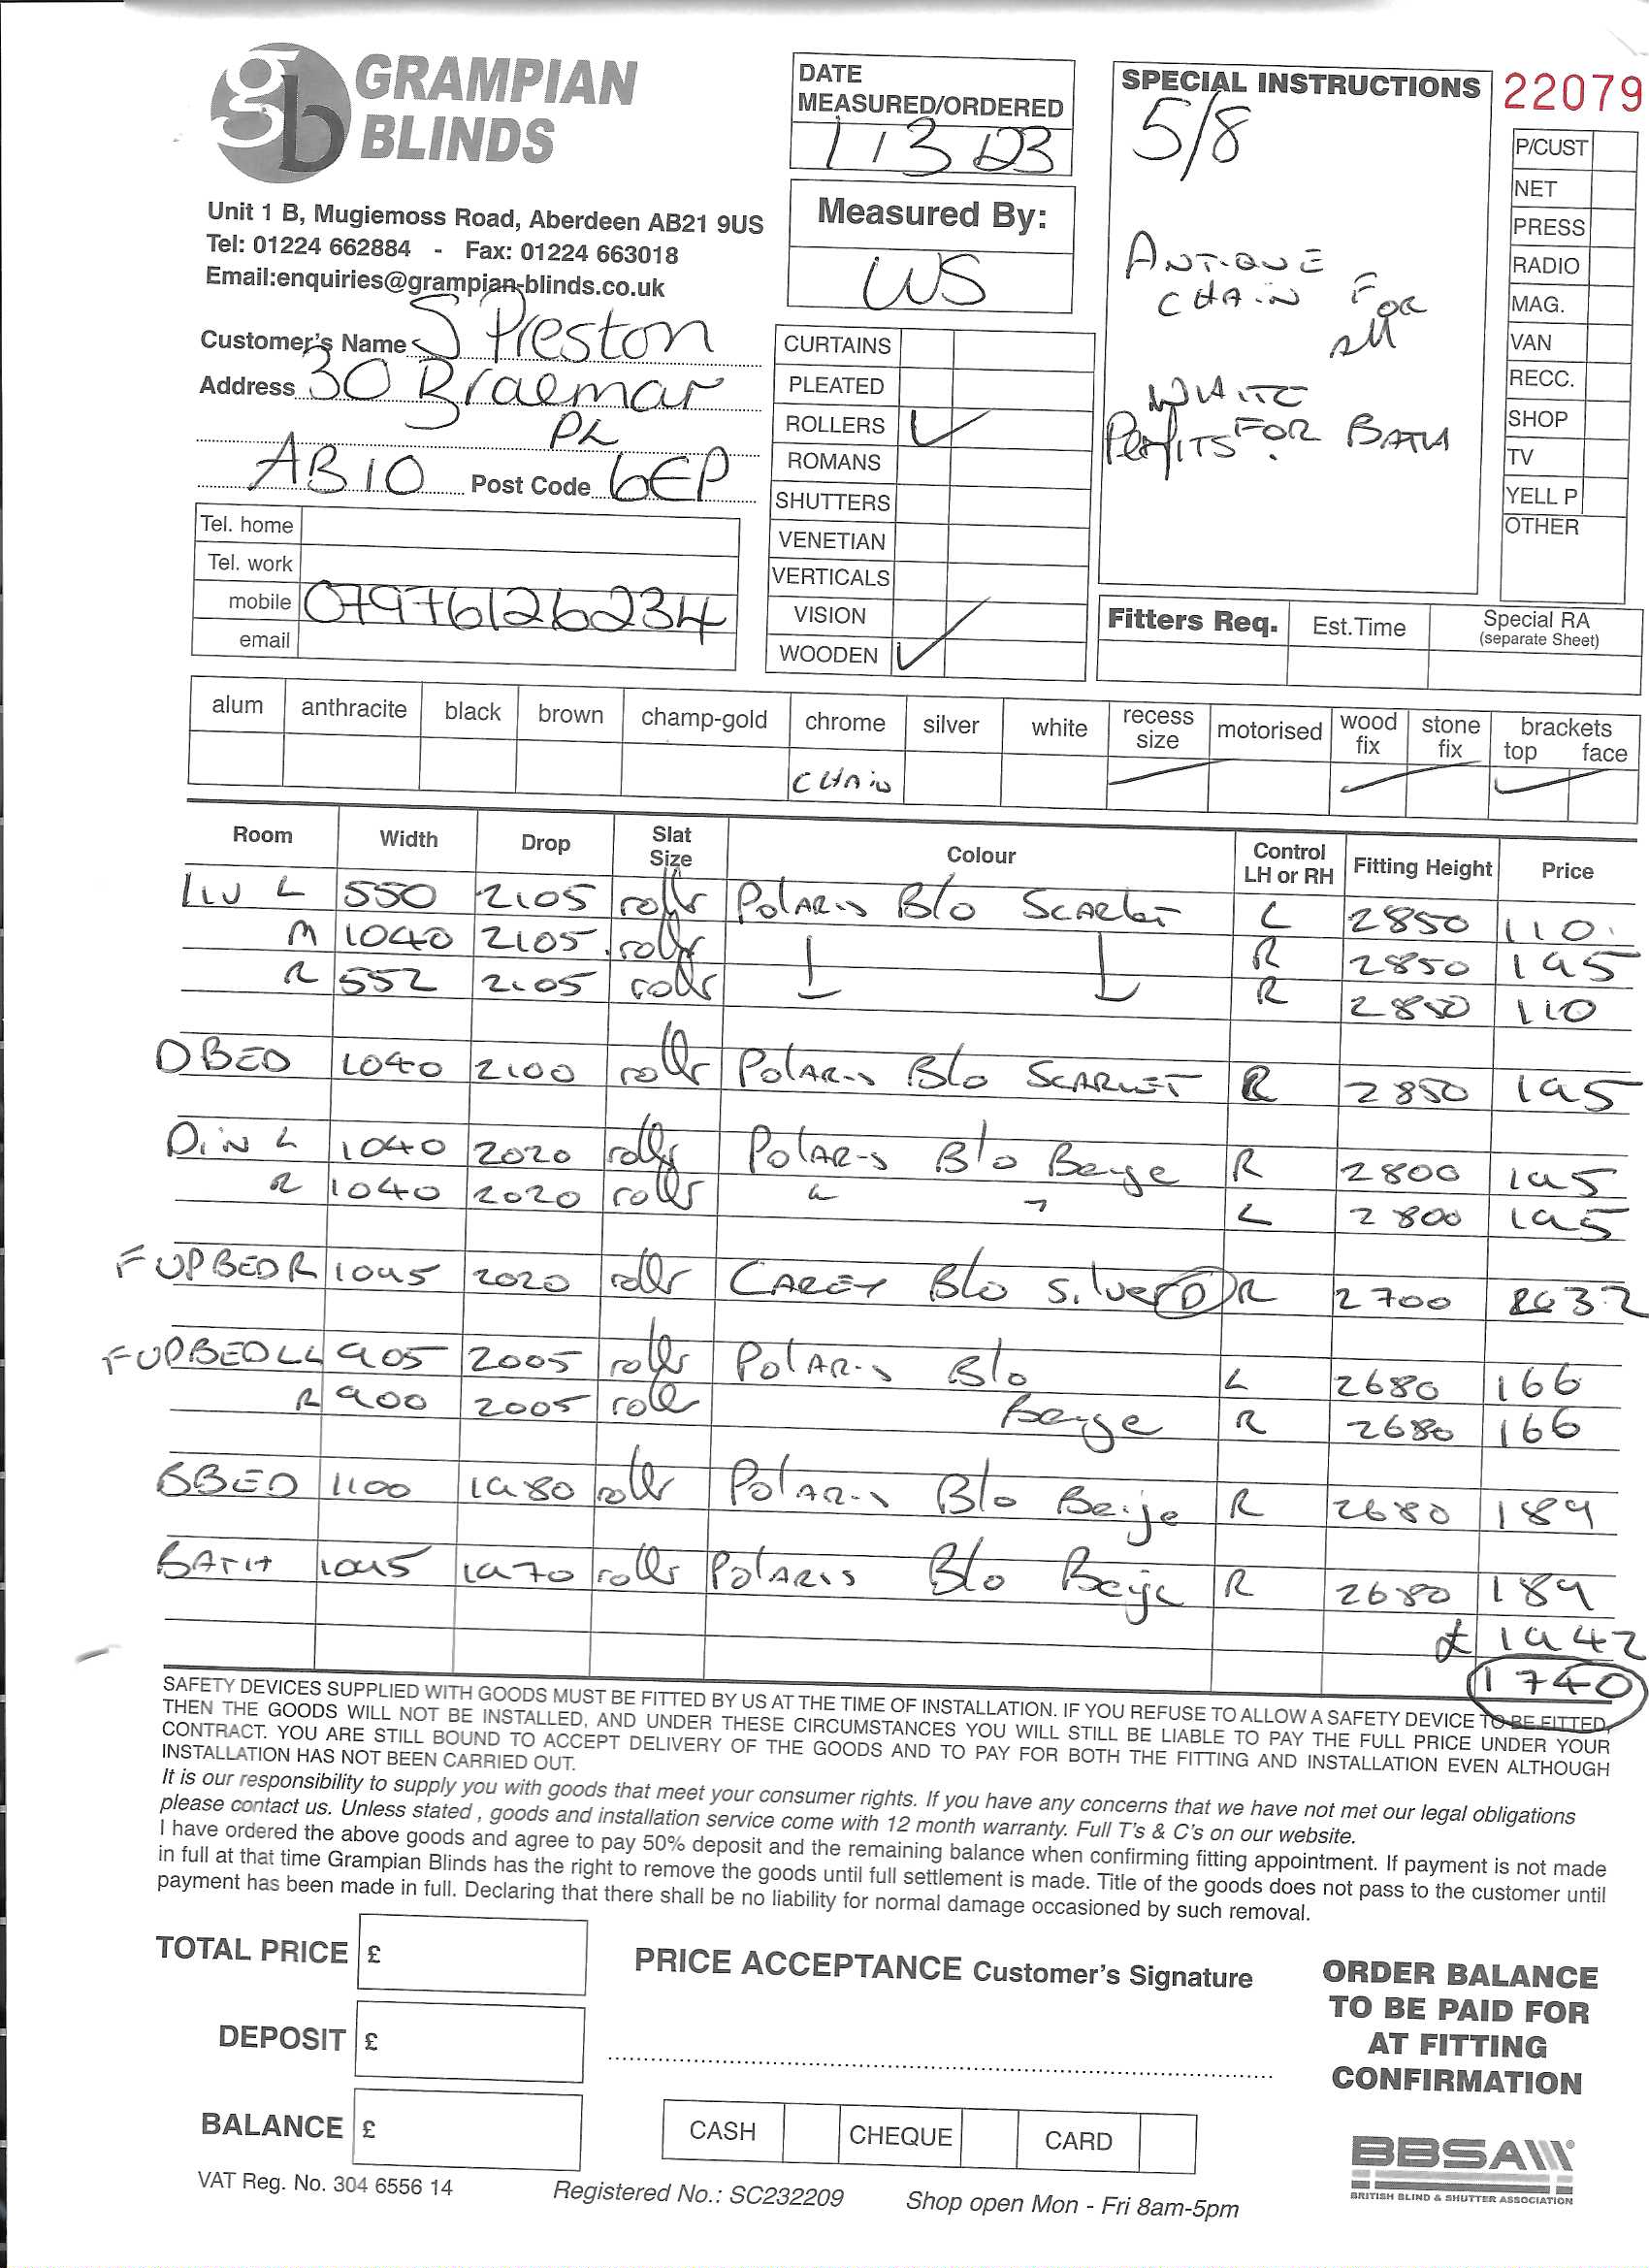 GRAMPIAN
BLINDS
Unit 1 B, Mugiemoss Road, Aberdeen AB21 9US
Tel: 01224 662884 - Fax: 01224 663018
Email:enquiries@grampian-blinds.co.uk
Customer's Name S Preston
Address 30 Braemar
PL
AB10 Post Code 6EP
Tel. home
Tel. work
mobile 07976126234
email
DATE
MEASURED/ORDERED
1 / 3 /23
Measured By:
WS
CURTAINS
PLEATED
ROLLERS ✓
ROMANS
SHUTTERS
VENETIAN
VERTICALS
VISION
WOODEN ✓
SPECIAL INSTRUCTIONS
5/8
ANTIQUE
CHAIN FOR
All
WHITE
FOR BATH
22079
P/CUST
NET
PRESS
RADIO
MAG.
VAN
RECC.
SHOP
TV
YELL P
OTHER
Fitters Req. Est.Time Special RA
(separate Sheet)
alum anthracite black brown champ-gold chrome silver white recess size motorised wood fix stone fix brackets top face
CHAIN
Room Width Drop Slat Size Colour Control LH or RH Fitting Height Price
LIV L 550 2105 roller Polaris Blo Scarlet L 2850 110
M 1040 2105 roller R 2850 195
R 552 2105 roller R 2850 110
DBED 1040 2100 roller Polaris Blo SCARLET R 2850 195
DIN L 1040 2020 roller Polaris Blo Beige R 2800 195
R 1040 2020 roller " " L 2800 195
FUPBEDR 1045 2020 roller CAREY Blo Silver D R 2700 232
FUPBEDLL 905 2005 roller Polaris Blo L 2680 166
R 900 2005 roller Beige R 2680 166
BBED 1100 1980 roller Polaris Blo Beije R 2680 189
BATH 1045 1970 roller Polaris Blo Beije R 2680 189
£ 1942
1740
SAFETY DEVICES SUPPLIED WITH GOODS MUST BE FITTED BY US AT THE TIME OF INSTALLATION. IF YOU REFUSE TO ALLOW A SAFETY DEVICE TO BE FITTED,
THEN THE GOODS WILL NOT BE INSTALLED, AND UNDER THESE CIRCUMSTANCES YOU WILL STILL BE LIABLE TO PAY THE FULL PRICE UNDER YOUR
CONTRACT. YOU ARE STILL BOUND TO ACCEPT DELIVERY OF THE GOODS AND TO PAY FOR BOTH THE FITTING AND INSTALLATION EVEN ALTHOUGH
INSTALLATION HAS NOT BEEN CARRIED OUT.
It is our responsibility to supply you with goods that meet your consumer rights. If you have any concerns that we have not met our legal obligations
please contact us. Unless stated , goods and installation service come with 12 month warranty. Full T's & C's on our website.
I have ordered the above goods and agree to pay 50% deposit and the remaining balance when confirming fitting appointment. If payment is not made
in full at that time Grampian Blinds has the right to remove the goods until full settlement is made. Title of the goods does not pass to the customer until
payment has been made in full. Declaring that there shall be no liability for normal damage occasioned by such removal.
TOTAL PRICE £
DEPOSIT £
BALANCE £
PRICE ACCEPTANCE Customer's Signature
CASH CHEQUE CARD
ORDER BALANCE
TO BE PAID FOR
AT FITTING
CONFIRMATION
BBSA
BRITISH BLIND & SHUTTER ASSOCIATION
VAT Reg. No. 304 6556 14 Registered No.: SC232209 Shop open Mon - Fri 8am-5pm